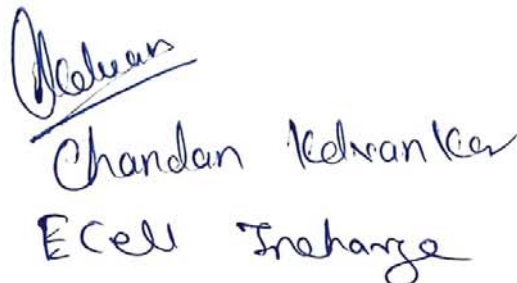 Chandan Kelvankar
ECell Incharge